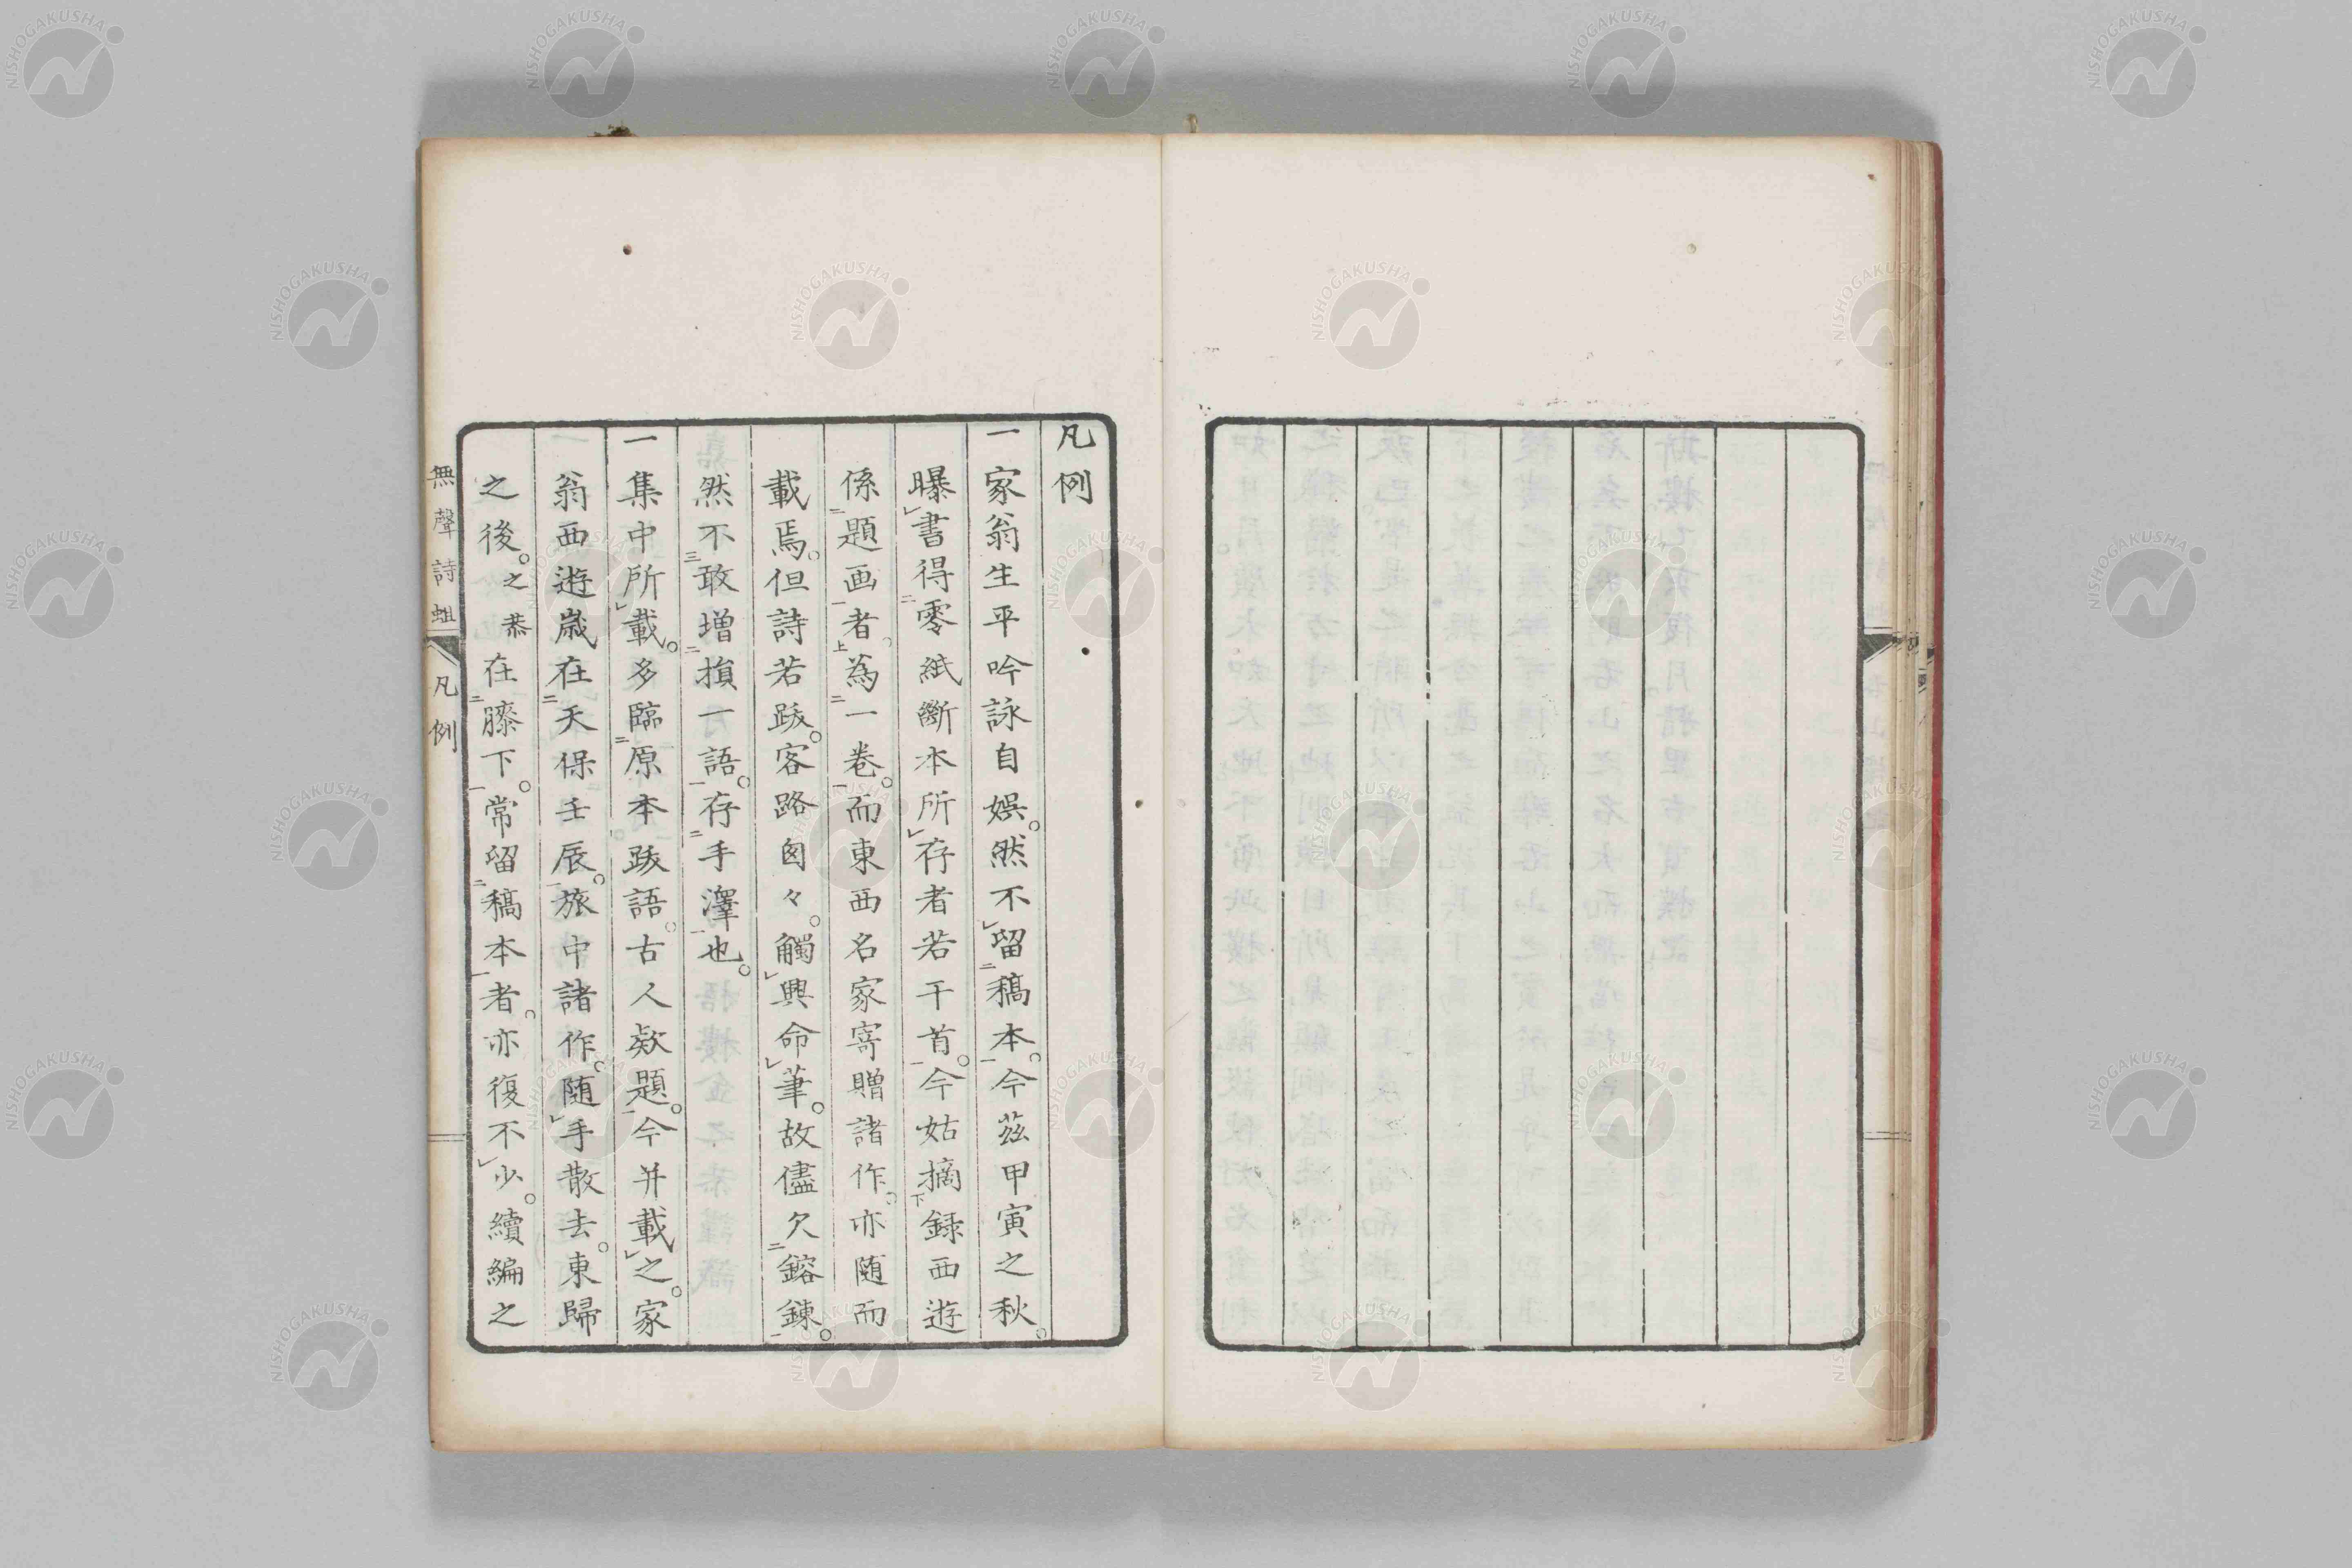 凡例
一家翁生平吟詠自娯。然不㆑留㆓稿本㆒。今茲甲寅之秋。
曝㆑書得㆓零紙斷本所㆑存者若干首㆒。今姑摘㆘録西遊
係㆓題画㆒者㆖。為㆓一巻㆒。而東西名家寄贈諸作。亦随而
載焉。但詩若跋。客路匆々。觸㆑興命㆑筆。故儘欠㆓鎔錬㆒。
然不㆔敢増㆓損一語㆒。存㆓手澤㆒也。
一集中所㆑載。多臨㆓原本跋語。古人欵題㆒。今并載㆑之。家
翁西遊歳在㆓天保壬辰㆒。旅中諸作。随㆑手散去。東歸
之後。之恭在㆓膝下㆒。常留㆓稿本㆒者。亦復不㆑少。續編之
無聲詩 凡例
NISHOGAKUSHA